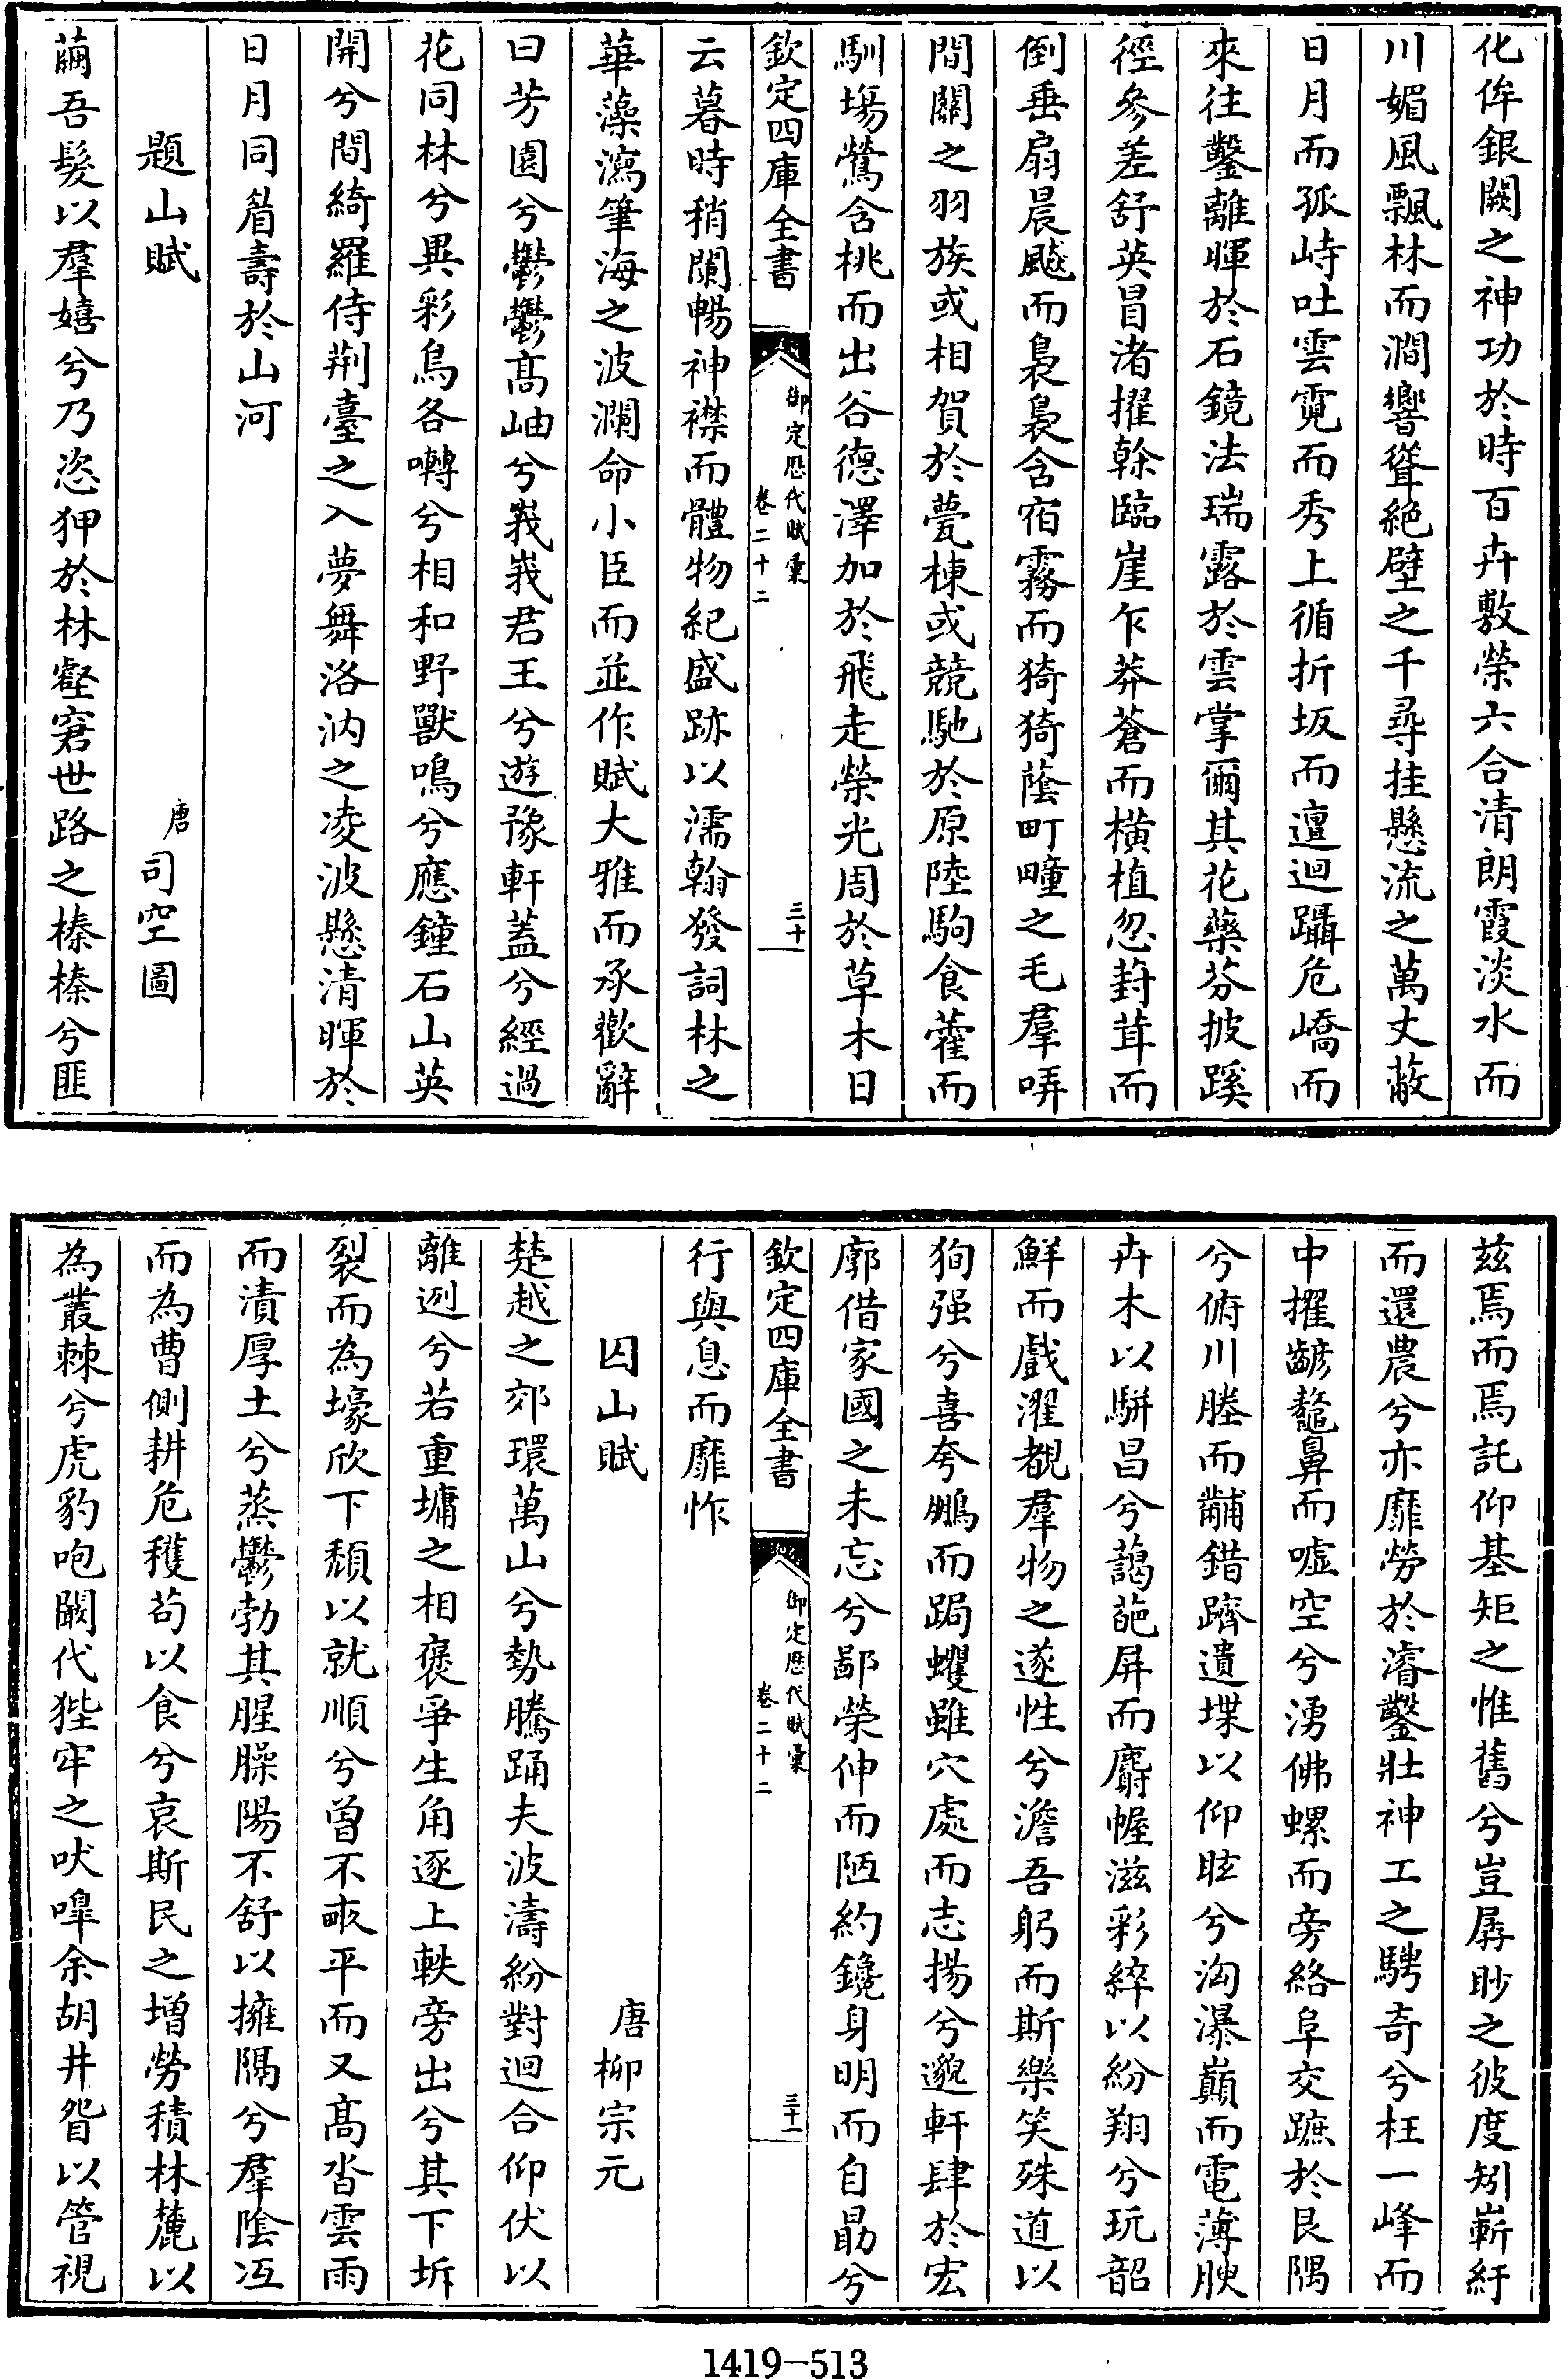 化侔銀闕之神功於時百卉敷榮六合清朗霞淡水而
川媚風飄林而澗響聳絶壁之千尋挂懸流之萬丈蔽
日月而孤峙吐雲霓而秀上循折坂而邅迴躡危嶠而
來往鑿離暉於石鏡法瑞露於雲掌爾其花藥芬披蹊
徑參差舒英冒渚擢榦臨崖乍莽蒼而横植忽葑茸而
倒垂扇晨颷而裊裊含宿霧而猗猗蔭町疃之毛羣哢
間關之羽族或相賀於甍棟或競馳於原陸駒食藿而
馴塲鶯含桃而出谷德澤加於飛走榮光周於草木日
欽定四庫全書
御定歴代賦彙
卷二十二
三十
云暮時稍闌暢神襟而體物紀盛跡以濡翰發詞林之
華藻瀉筆海之波瀾命小臣而並作賦大雅而承歡辭
曰芳園兮鬱鬱髙岫兮峩峩君王兮遊豫軒蓋兮經過
花同林兮異彩鳥各囀兮相和野獸鳴兮應鐘石山英
開兮間綺羅侍荆臺之入夢舞洛汭之凌波懸清暉於
日月同眉壽於山河
題山賦
唐司空圖
繭吾髮以羣嬉兮乃恣狎於林壑窘世路之榛榛兮匪
兹焉而焉託仰基矩之惟舊兮豈孱眇之彼度矧嶄紆
而還農兮亦靡勞於濬鑿壯神工之騁奇兮枉一峰而
中擢齴鼇鼻而嘘空兮湧佛螺而旁絡阜交蹠於艮隅
兮俯川塍而黼錯躋遺堞以仰眩兮洶瀑巔而電薄腴
卉木以駢昌兮藹葩屏而麝幄滋彩綷以紛翔兮玩韶
鮮而戲濯覩羣物之遂性兮澹吾躬而斯樂笑殊道以
狥强兮喜夸鵬而跼蠼雖穴處而志揚兮邈軒肆於宏
廓借家國之未忘兮鄙榮伸而陋約鑱身明而自勗兮
欽定四庫全書
御定歴代賦彙
卷二十二
三十一
行與息而靡怍
囚山賦
唐柳宗元
楚越之郊環萬山兮勢騰踊夫波濤紛對迴合仰伏以
離迾兮若重墉之相褒爭生角逐上軼旁出兮其下坼
裂而為壕欣下頽以就順兮曾不畝平而又髙沓雲雨
而漬厚土兮蒸鬱勃其腥臊陽不舒以擁隔兮羣陰冱
而為曹側耕危穫苟以食兮哀斯民之增勞積林麓以
為叢棘兮虎豹咆㘚代狴牢之吠嘷余胡井眢以管視
1419-513